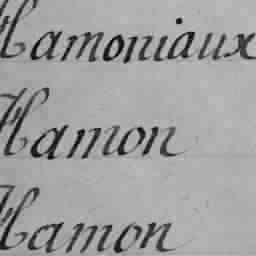 Hamoniaux
Hamon
Hamon